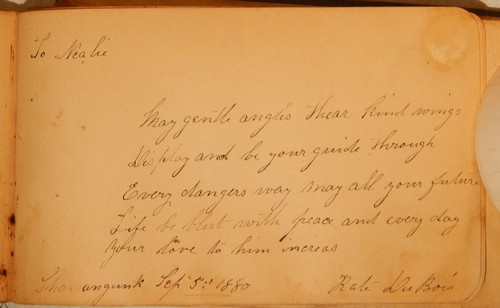 To Nealie
May gentle angles thear kind wings
Display and be your guide through
Every dangers way may all your future
Life be blest with peace and every day
Your love to him increas
Shawangunk Sep 5th 1880 Kate DuBois